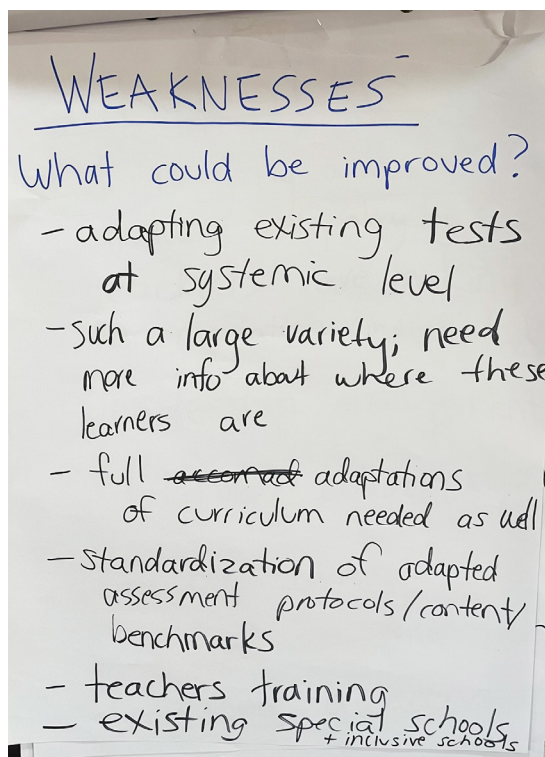 WEAKNESSES
What could be improved?
- adapting existing tests
at systemic level
- such a large variety; need
more info about where these
learners are
- full accomad adaptations
of curriculum needed as well
- standardization of adapted
assessment protocols/content/
benchmarks
- teachers training
- existing special schools
+ inclusive schools